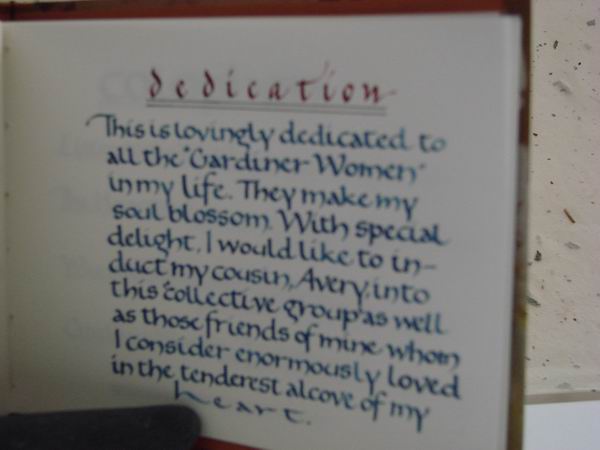 dedication
This is lovingly dedicated to
all the "Gardiner Women"
in my life. They make my
soul blossom. With special
delight, I would like to in-
duct my cousin, Avery, into
this "collective group" as well
as those friends of mine whom
I consider enormously loved
in the tenderest alcove of my
heart.